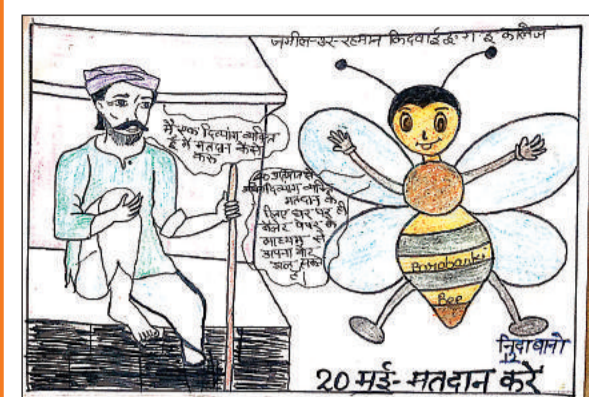 जमील-उर-रहमान किदवाई इ० ग० इ० कालेज
मैं एक दिव्यांग व्यक्ति
हूं मैं मतदान कैसे
करू
40 प्रतिशत से
अधिक दिव्यांग व्यक्ति
मतदान के
लिए घर पर ही
बैलेट पेपर के
माध्यम से
अपना वोट
डाल सकते
है।
Barabanki
Bee
निदा बानो
12
20 मई- मतदान करें